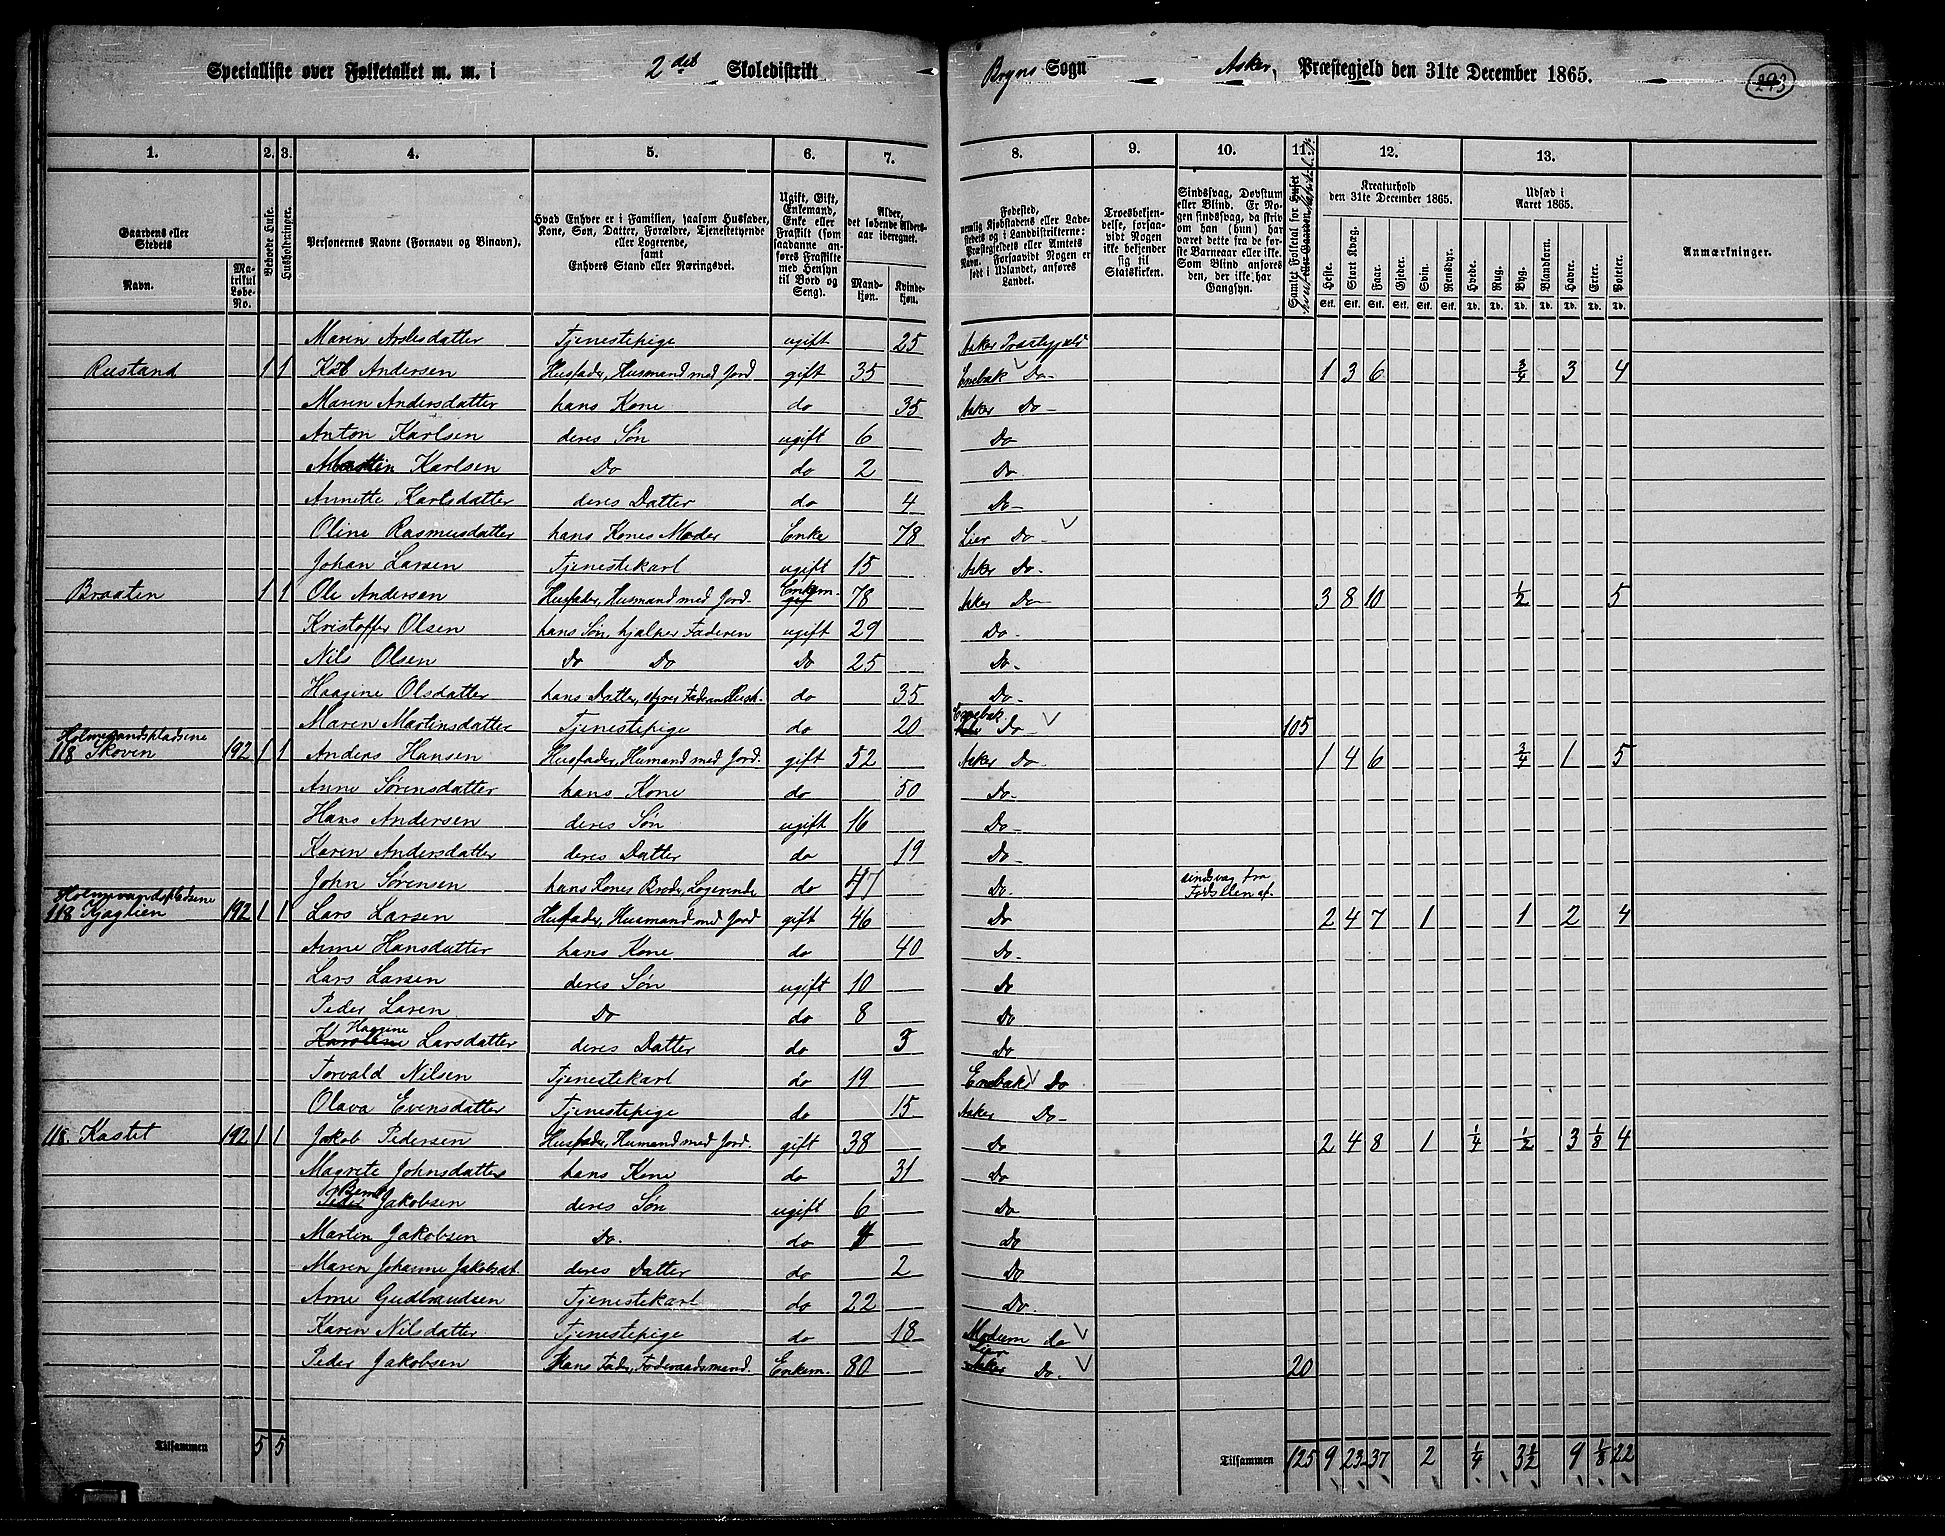 Specialliste over Folketallet m. m. i 2det Skoledistrikt Sogn Asker Præstegjeld den 31te December 1865. 293
1. 2. 3. 4. 5. 6. 7. 8. 9. 10. 11. 12. 13.
Gaardens eller Stedets Navn. Matrikul Løbe-No. Beboede Huse. Husholdninger.
Personernes Navne (Fornavn og Binavn).
Hvad Enhver er i Familien, saasom Husfader, Kone, Søn, Datter, Forældre, Tjenestetyende eller Logerende, samt Enhvers Stand eller Næringsvei.
Ugift, Gift, Enkemand, Enke eller Fraskilt (som saadanne anføres Fraskilte med Hensyn til Bord og Seng).
Alder, det løbende Aldersaar iberegnet. Mandkjøn. Kvindekjøn.
Fødested, nemlig Kjøbstadens eller Ladestedets og i Landdistrikterne: Præstegjeldets eller Amtets Navn. Forsaavidt Nogen er født i Udlandet, anføres Landet.
Troesbekjendelse, forsaavidt Nogen ikke bekjender sig til Statskirken.
Sindssvag, Døvstum eller Blind. Er Nogen sindssvag, da skrives om han (hun) har været dette fra de første Barneaar eller ikke. Som Blind anføres den, der ikke har Gangsyn.
Kreaturhold den 31te December 1865. Heste. Stort Kvæg. Faar. Gjeder. Svin. Rensdyr.
Udsæd i Aaret 1865. Hvede. Rug. Byg. Blandkorn. Havre. Erter. Poteter.
Anmærkninger.
Maren Tjenestepige ugift 25 Asker Præstegjeld
Rustand 1 1 Andersen Husfader, Husmand med Jord gift 35 Enebak Do 1 3 6 3/4 3 4
Maren Andersdatter hans Kone do 35 Asker Do
Anton Karlsen deres Søn ugift 6 Do
Martin Karlsen Do do 2 Do
Annette Karlsdatter deres Datter do 4 Do
Oline Rasmusdatter hans Kones Moder Enke 78 Lier Do
Johan Larsen Tjenestekarl ugift 15 Asker Do
Braaten 1 1 Ole Andersen Husfader, Husmand med Jord. Enkem. 78 Asker Do 3 8 10 1/2 5
Kristoffer Olsen hans Søn, hjælper Faderen ugift 29 Do
Nils Olsen Do Do Do 25 Do
Haagine Olsdatter hans Datter, styrer Faderens Hush. do 35 Do
Maren Martinsdatter Tjenestepige do 20 Enebak Do 105
118 Skoven 192 1 1 Anders Hansen Husfader, Husmand med Jord. gift 52 Asker Do 1 4 6 3/4 1 5
Anne Sørensdatter hans Kone do 50 Do
Hans Andersen deres Søn ugift 16 Do
Karen Andersdatter deres Datter do 19 Do
John Sørensen hans Kones Broder, Logerende do 47 Do sindsvag fra Fødselen af
118 Kjaglien 192 1 1 Lars Larsen Husfader, Husmand med Jord gift 46 Do 2 4 7 1 1 2 4
Anne Hansdatter hans Kone do 40 Do
Lars Larsen deres Søn ugift 10 Do
Peder Laren Do do 8 Do
Haagine Larsdatter deres Datter do 3 Do
Torvald Nilsen Tjenestekarl do 19 Enebak Do
Olava Evensdatter Tjenestepige do 15 Asker Do
118. Kastet 192 1 1 Jakob Pedersen Husfader, Husmand med Jord. gift 38 Do 2 4 8 1 1/4 1/2 3 1/8 4
Magrete Johnsdatter hans Kone do 31 Do
Jakobsen deres Søn ugift 6 Do
Martin Jakobsen Do do Do
Maren Johanne Jakobsdt. deres Datter do 2 Do
Arne Gudbrandsen Tjenestekarl do 22 Do
Karen Nilsdatter Tjenestepige do 18 Modum do
Peder Jakobsen Hans Fader, Foderaadsmand. Enkem. 80 Lier Do 20
Tilsammen 5 5 Tilsammen 125 9 23 37 2 1/4 3 1/2 9 1/8 22